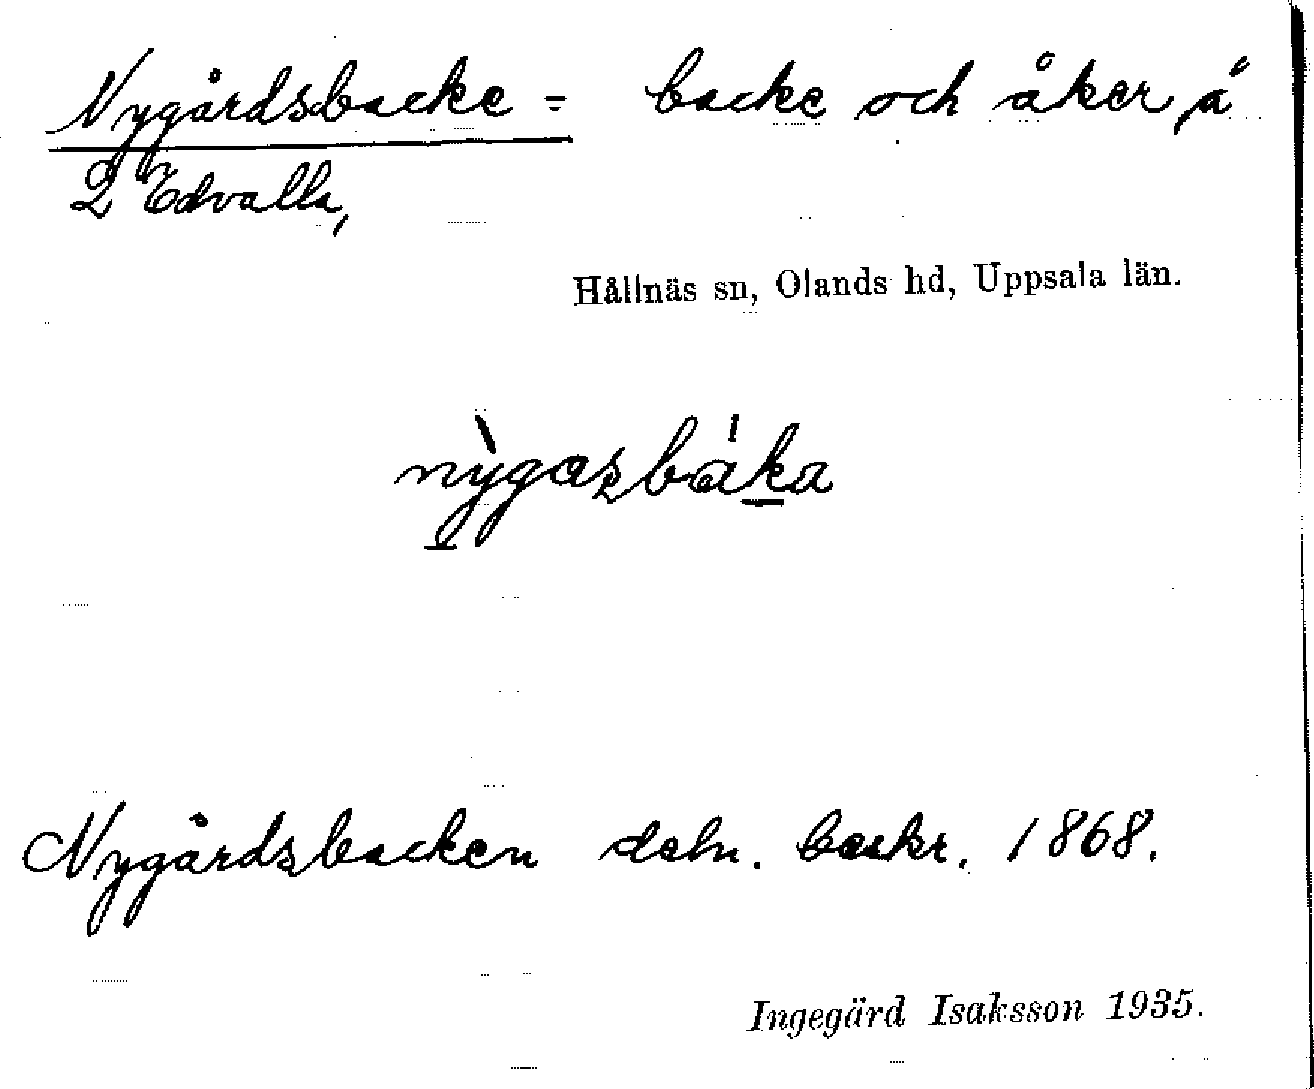 Nygårdsbacke = backe och åker, å
2 Edvalla,
Hållnäs sn, Olands hd, Uppsala län.
nỳgasbáka
Nygårdsbacken deln. beskr. 1868.
Ingegärd Isaksson 1935.